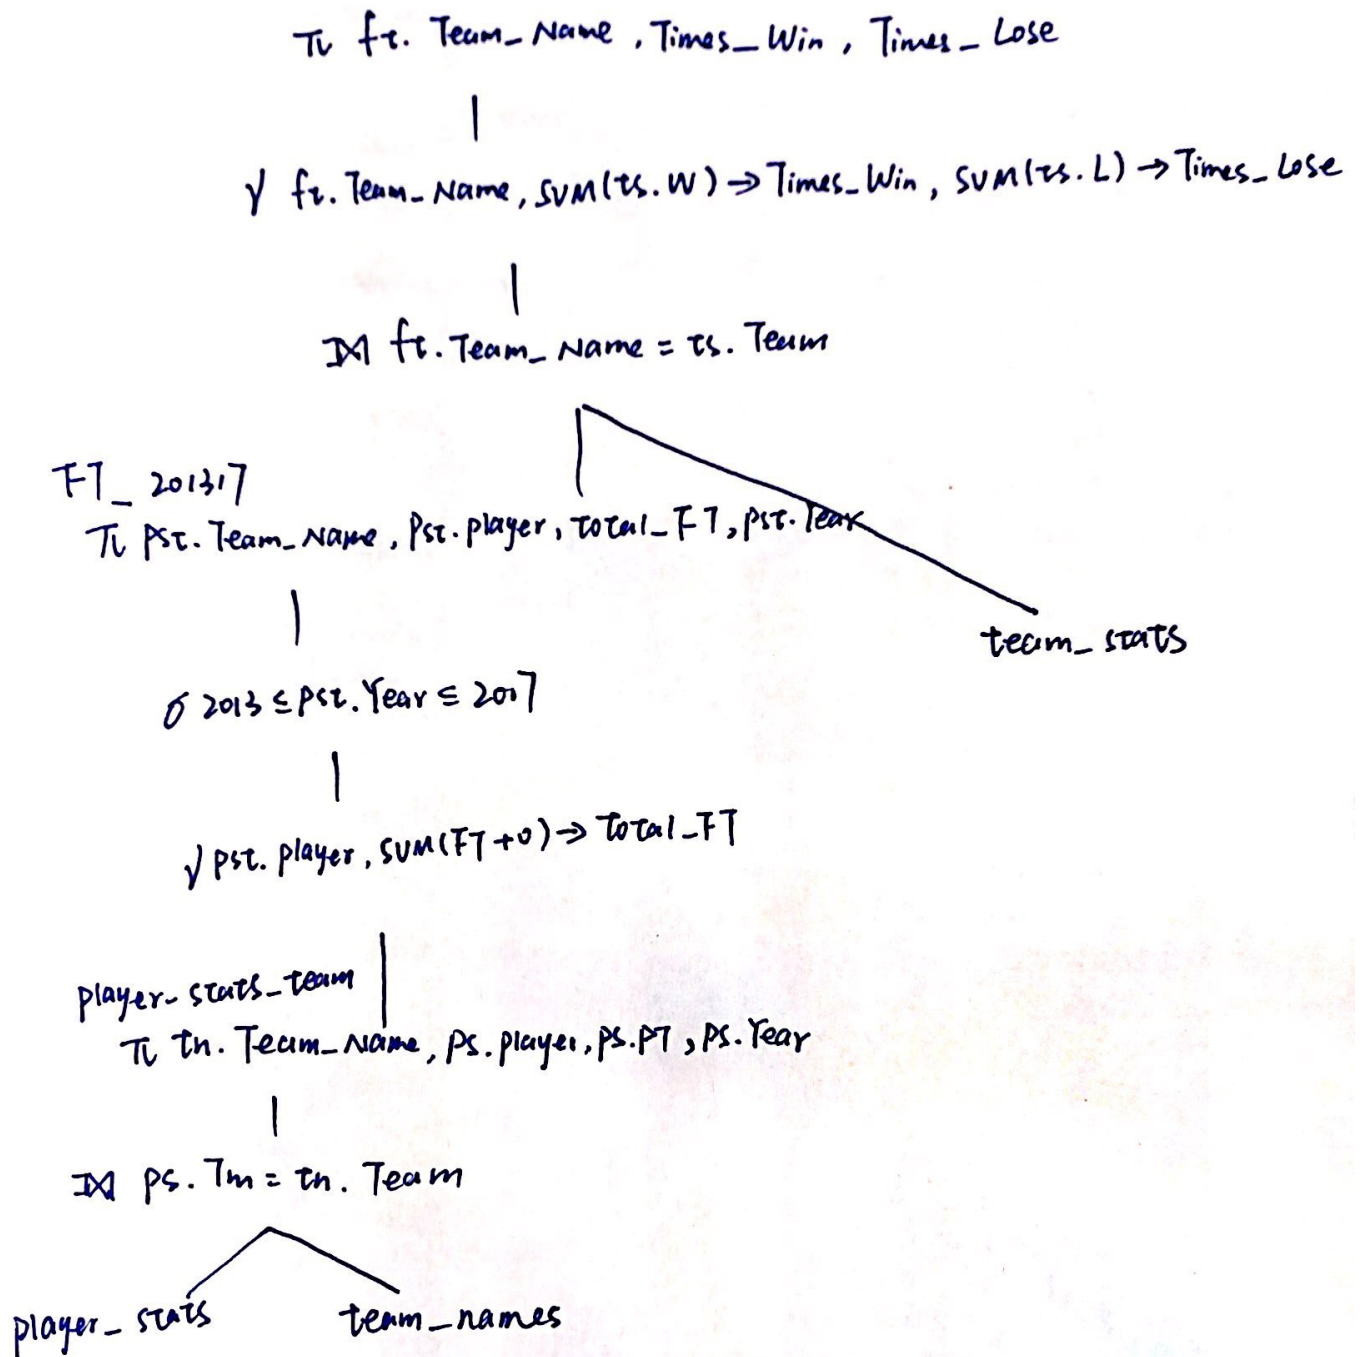 π ft. Team_Name, Times_Win, Times_Lose
γ ft. Team_Name, SUM(ts.W) → Times_Win, SUM(ts.L) → Times_Lose
⟕ ft. Team_Name = ts. Team
FT_201317
π Pst. Team_Name, Pst. player, total_FT, pst. Year
team_stats
σ 2013 ≤ pst. Year ≤ 2017
γ pst. player, SUM(FT+0) → Total_FT
player_stats_team
π tn. Team_Name, ps. player, ps. PT, ps. Year
⟕ ps. Tm = tn. Team
player_stats team_names